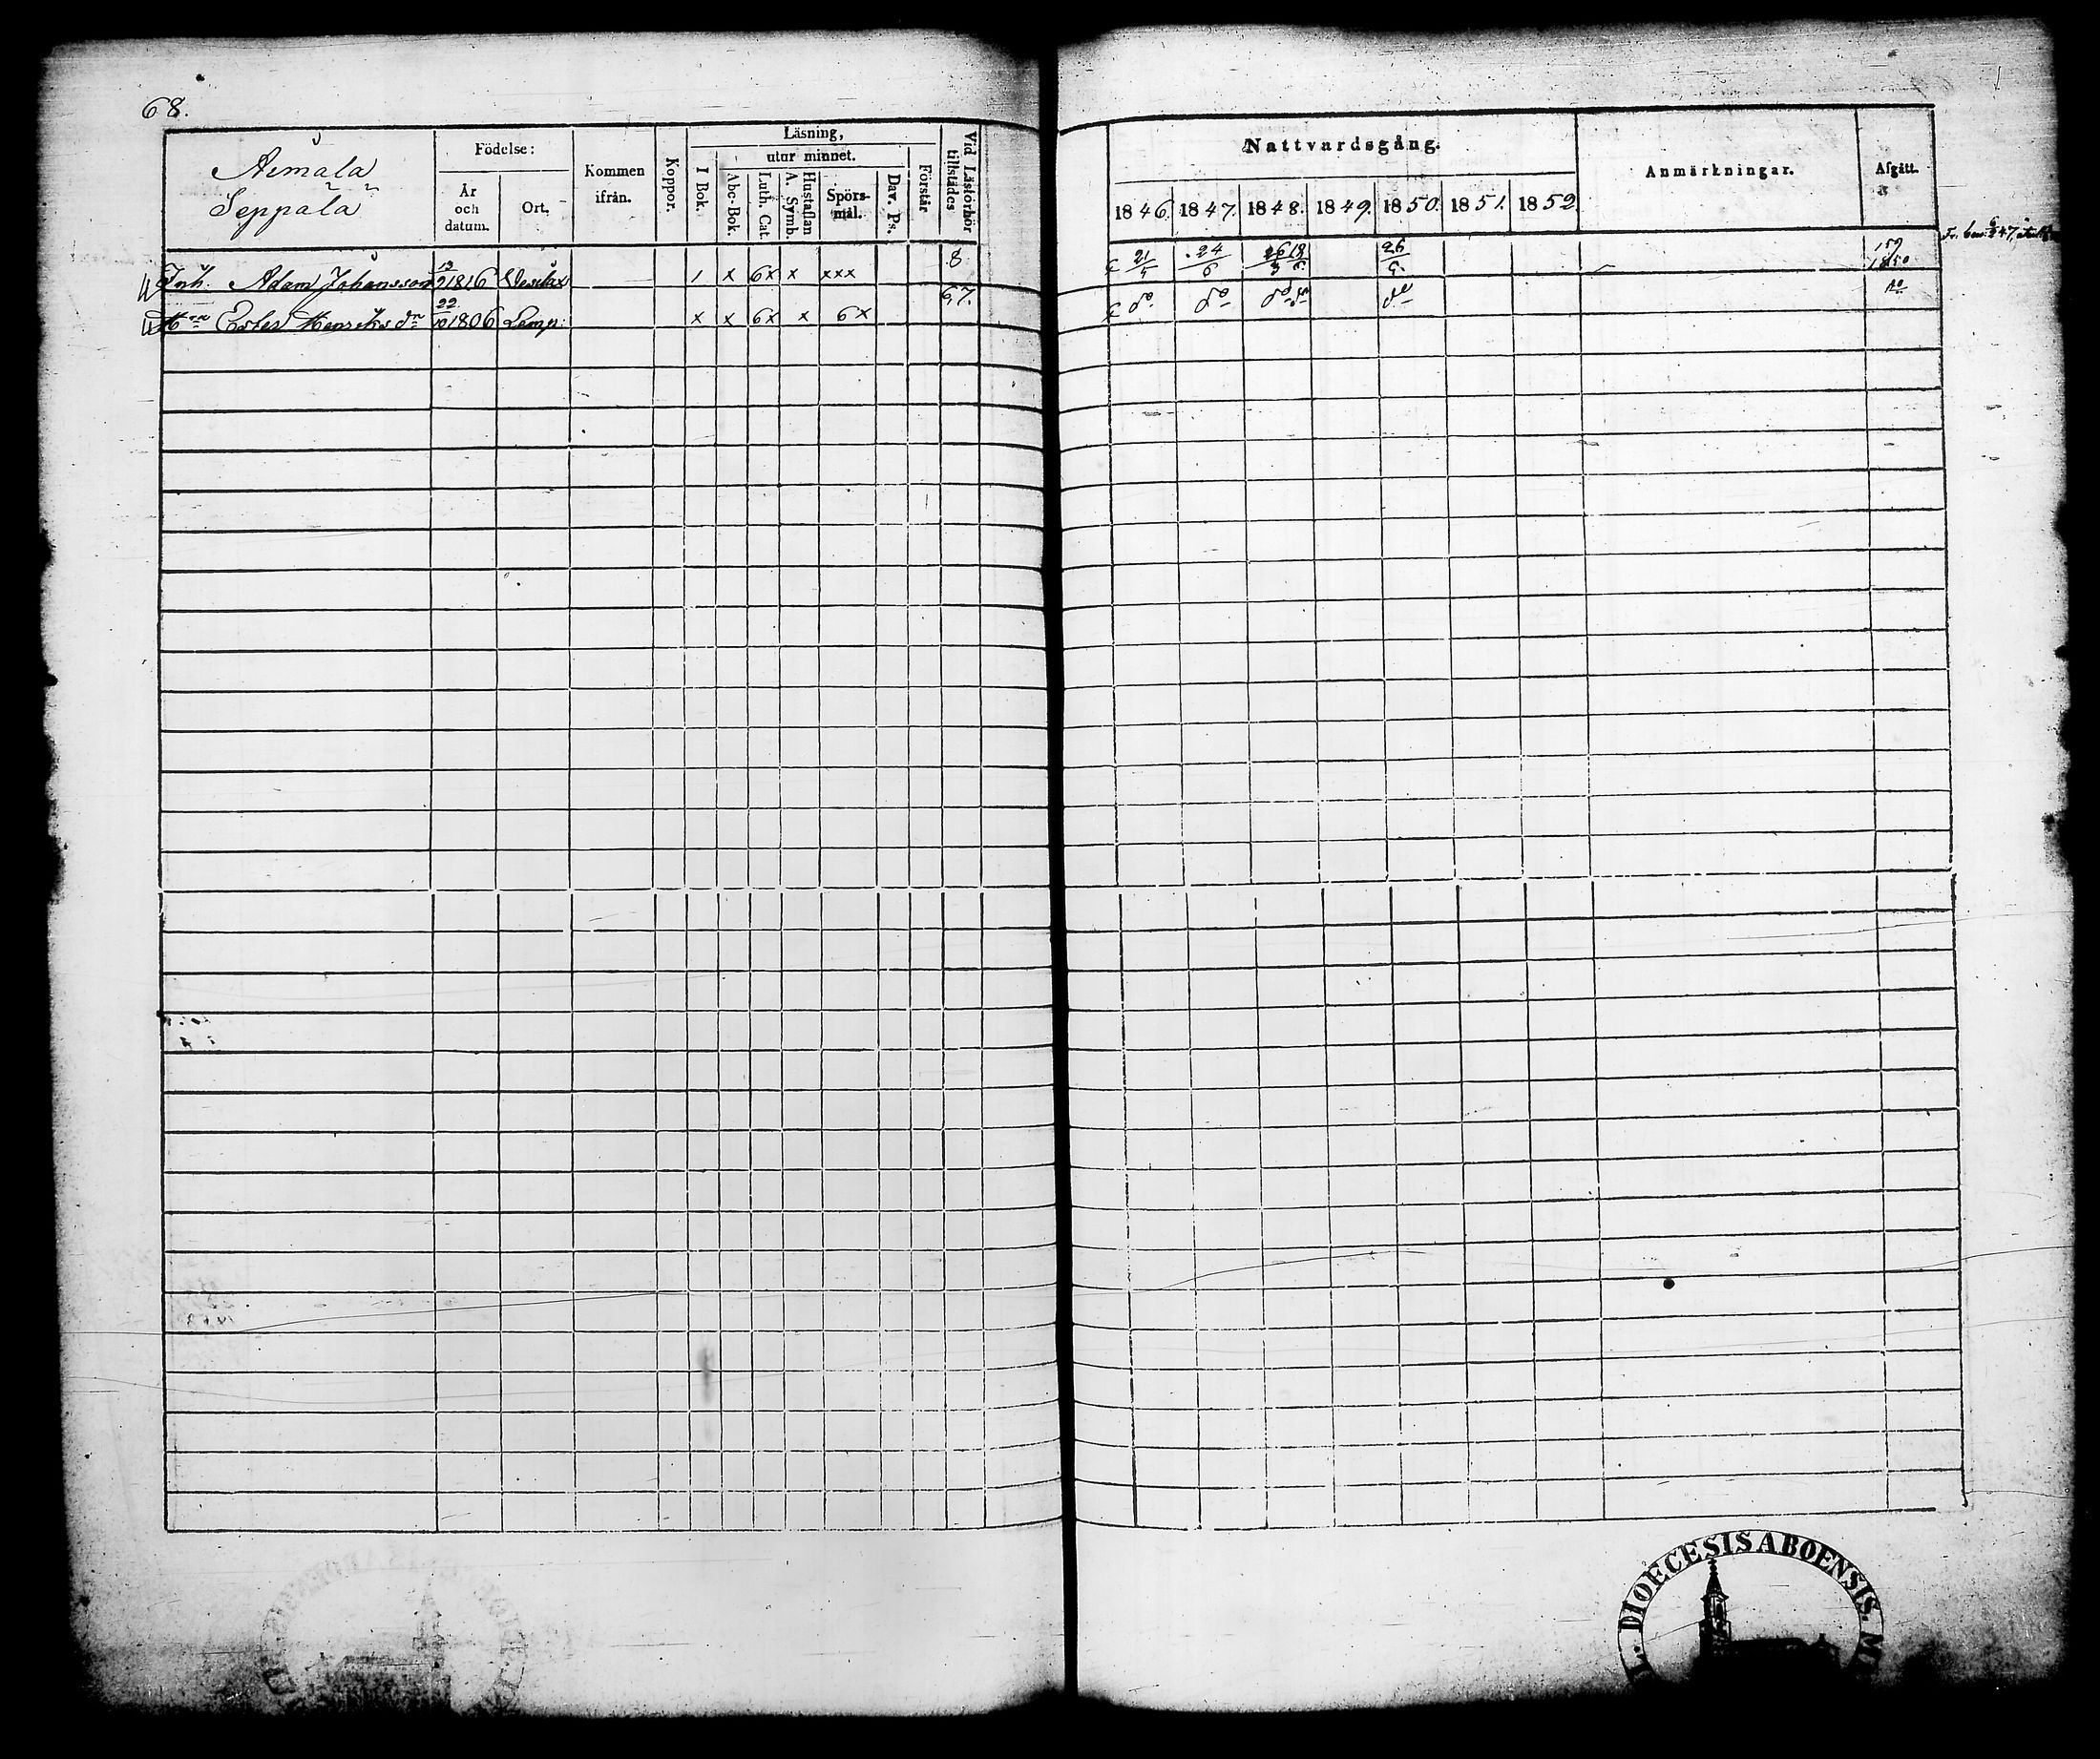 68.
Aimala
Seppälä
Födelse:
År
och
datum.
Ort.
Kommen
ifrån.
Koppor.
Läsning,
utur minnet.
I Bok.
Abc-Bok.
Luth. Cat.
A. Symb.
Hustaflan
Spörs-
mål.
Dav. Ps.
Förstår
Vid Läsförhör
tillstädes
Inh. Adam Johansson 13 1816 Vesilax 1 x 6x x xxx 8
H:n Henriks d:r 22/10 1806 Lemp: x x 6x x 6x 6,7.
Nattvardsgång.
1846. 1847. 1848. 1849. 1850. 1851. 1852.
Anmärkningar.
Afgått.
21 24/6 26/3 18 26
159
1850
do do do do do
L. DIOECESIS ABOENSIS. M